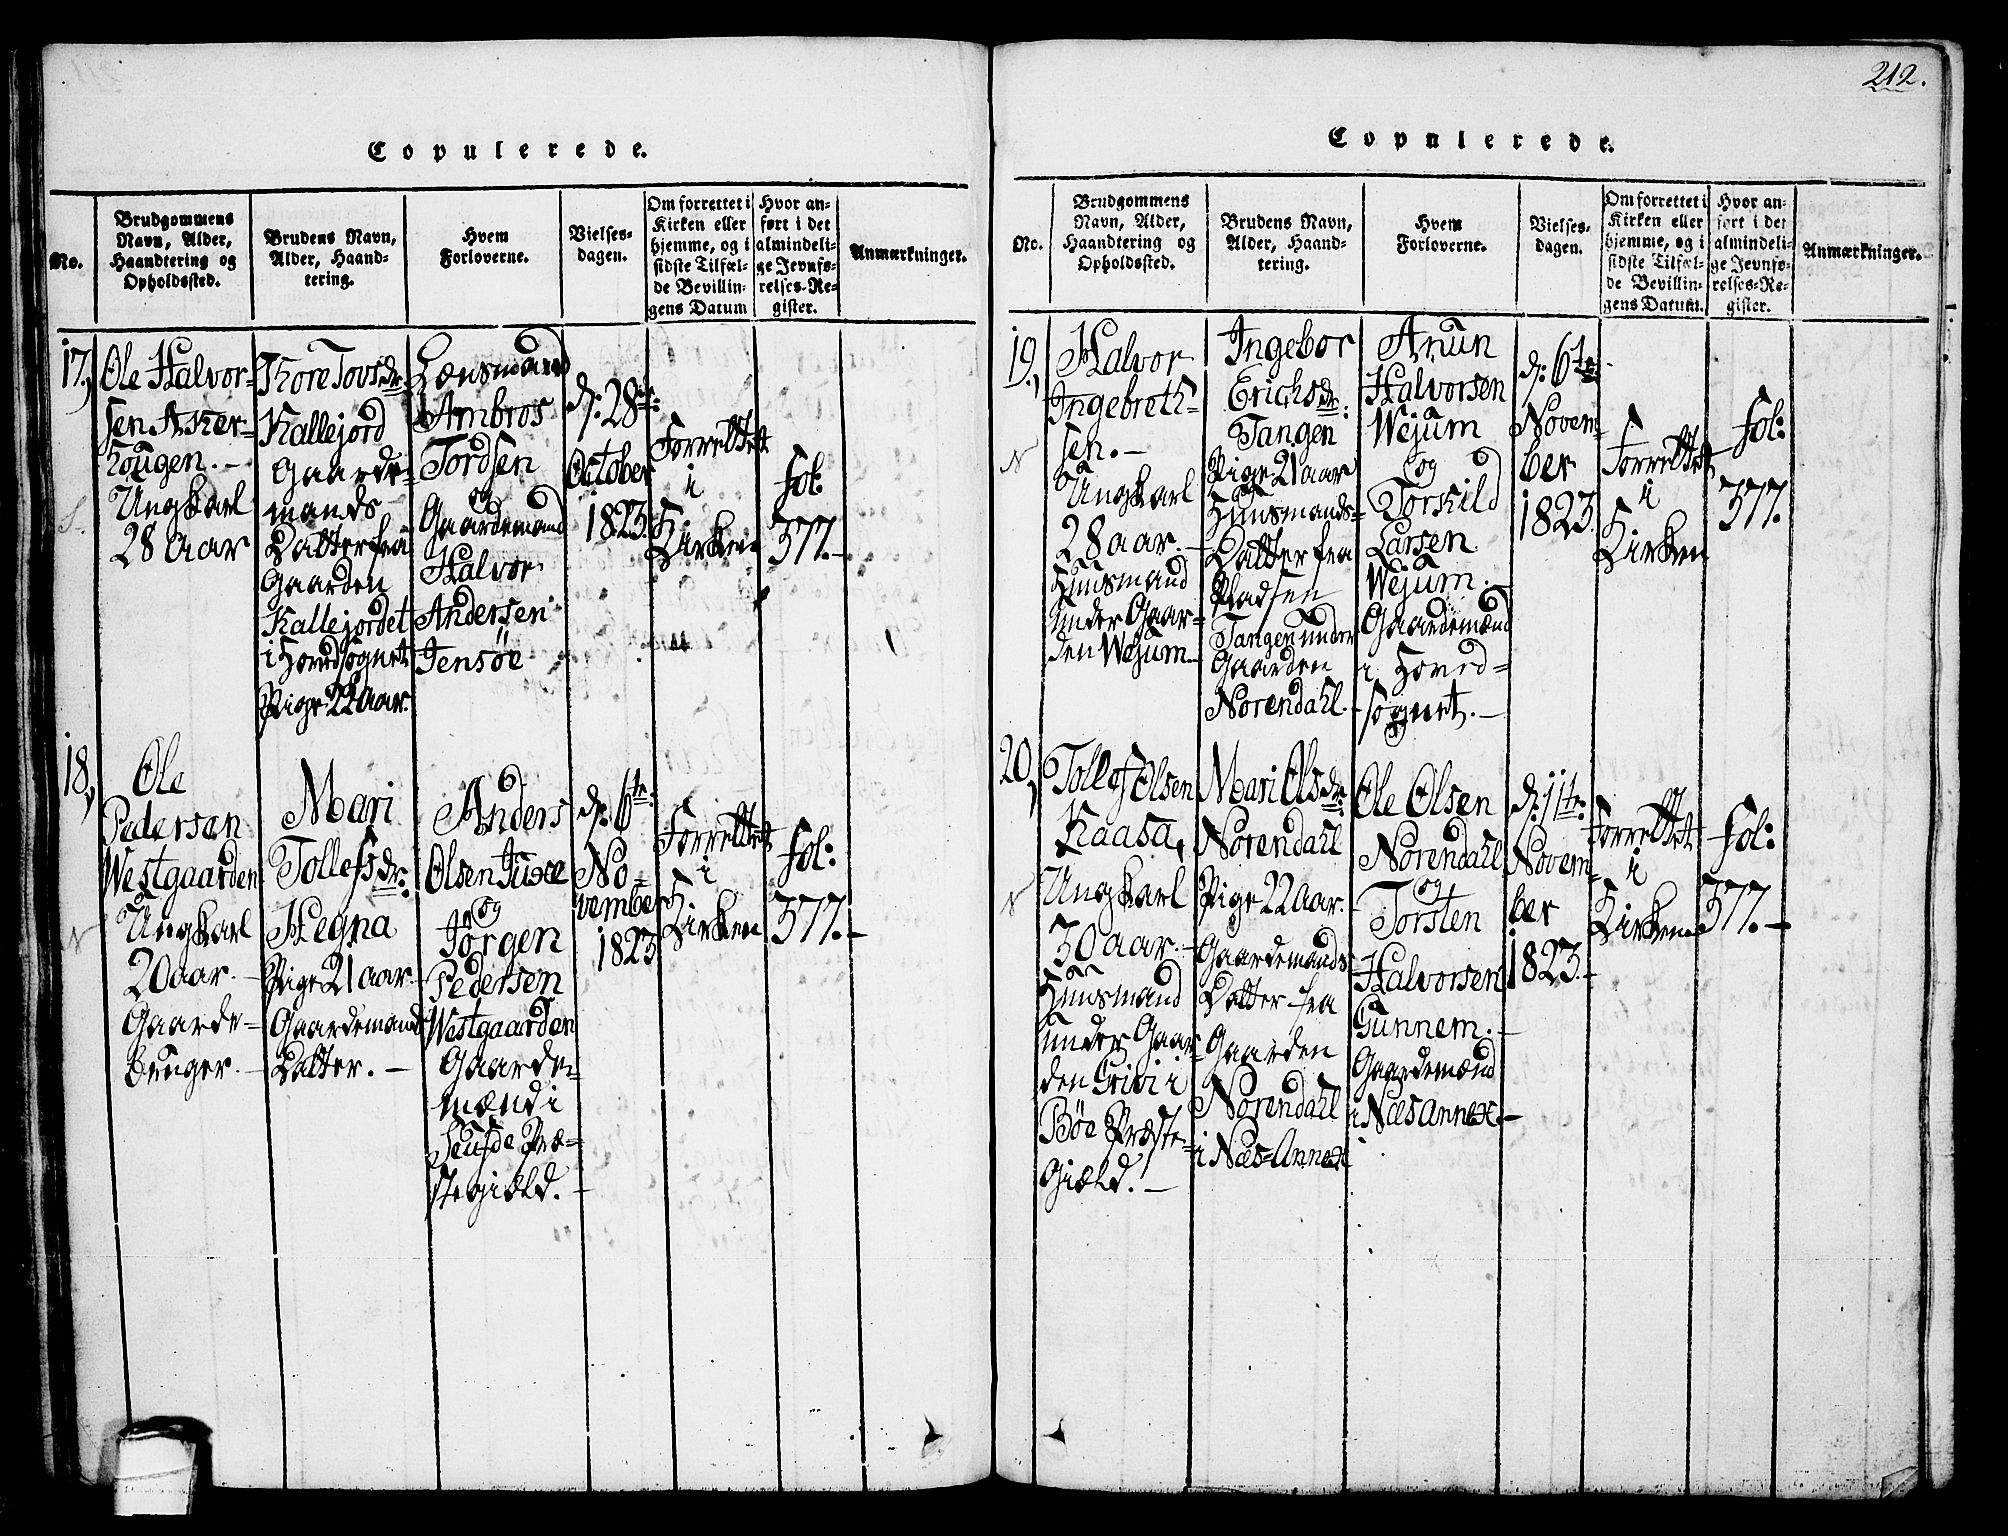 Copulerede.
No.
Brudgommens
Navn, Alder,
Haandtering og
Opholdssted.
Brudens Navn,
Alder, Haand-
tering.
Hvem
Forloverne.
Vielses-
dagen.
Om forrettet i
Kirken eller
hjemme, og i
sidste Tilfæl-
de Bevillin-
gens Datum
Hvor an-
ført i det
almindeli-
ge Jevnfø-
relses-Re-
gister.
Anmærkninger.
17,
Ole Halvor-
sen Asker-
hougen.-
Ungkarl
28 aar
Thore Tovsdr.
Kallejord
Gaarde-
mands
Datter fra
Gaarden
Kallejordet
i Hovedsognet
Pige 22 aar.
Lænsmand
Ambros
Tordsen
og
Gaardemand
Halvor
Andersen
Jensøe
d: 28de:
October
1823.
Forrettet
i
Kirken
fol:
377.-
18,
Ole
Pedersen
Westgaarden
Ungkarl
20 aar.-
Gaarde-
bruger.-
Mari
Tollefsdr:
Hegna
Pige 21 aar.
Gaardemand
Datter.-
Anders
Olsen Juxe
og
Jørgen
Pedersen
Westgaarden
Gaarde-
mænd i
Seufde Præ-
stegiæld.-
d: 6te:
No-
vember
1823
Forrettet
i
Kirken
fol:
377.-
212.
Copulerede.
No.
Brudgommens
Navn, Alder,
Haandtering og
Opholdssted.
Brudens Navn,
Alder, Haand-
tering.
Hvem
Forloverne.
Vielses-
dagen.
Om forrettet i
Kirken eller
hjemme, og i
sidste Tilfæl-
de Bevillin-
gens Datum.
Hvor an-
ført i det
almindeli-
ge Jevnfø-
relses-Re-
gister.
Anmærkninger.
19,
Halvor
Ingebreth-
sen.-
Ungkarl
28 aar.-
Huusmand
under Gaar-
den Wejum.
Ingebor
Erichsdr:
Tangen
Pige 21 aar
Huusmands-
Datter fra
Pladsen
Tangen under
Gaarden
Norendahl.-
Anun
Halvorsen
Wejum
og
Torkild
Larsen
Wejum.
Gaardemænd
i Hoved-
sognet.-
d: 6te
Novem-
ber
1823.
Forrettet
i
Kirken
fol:
377.
20,
Tollef Olsen
Kaasa,
Ungkarl
30 aar.-
Huusmand
under Gaar-
den Grivi i
Bøe Præste-
Giæld.-
Mari Olsdr:
Norendahl
Pige 22 aar.
Gaardemands
Datter fra
Gaarden
Norendahl
i Næs-Annex
Ole Olsen
Norendahl
og
Torsten
Halvorsen
Gunnem.-
Gaardemænd
i Næs Annex.-
d: 11te:
Novem-
ber
1823.-
Forrettet
i
Kirken
fol:
377.-